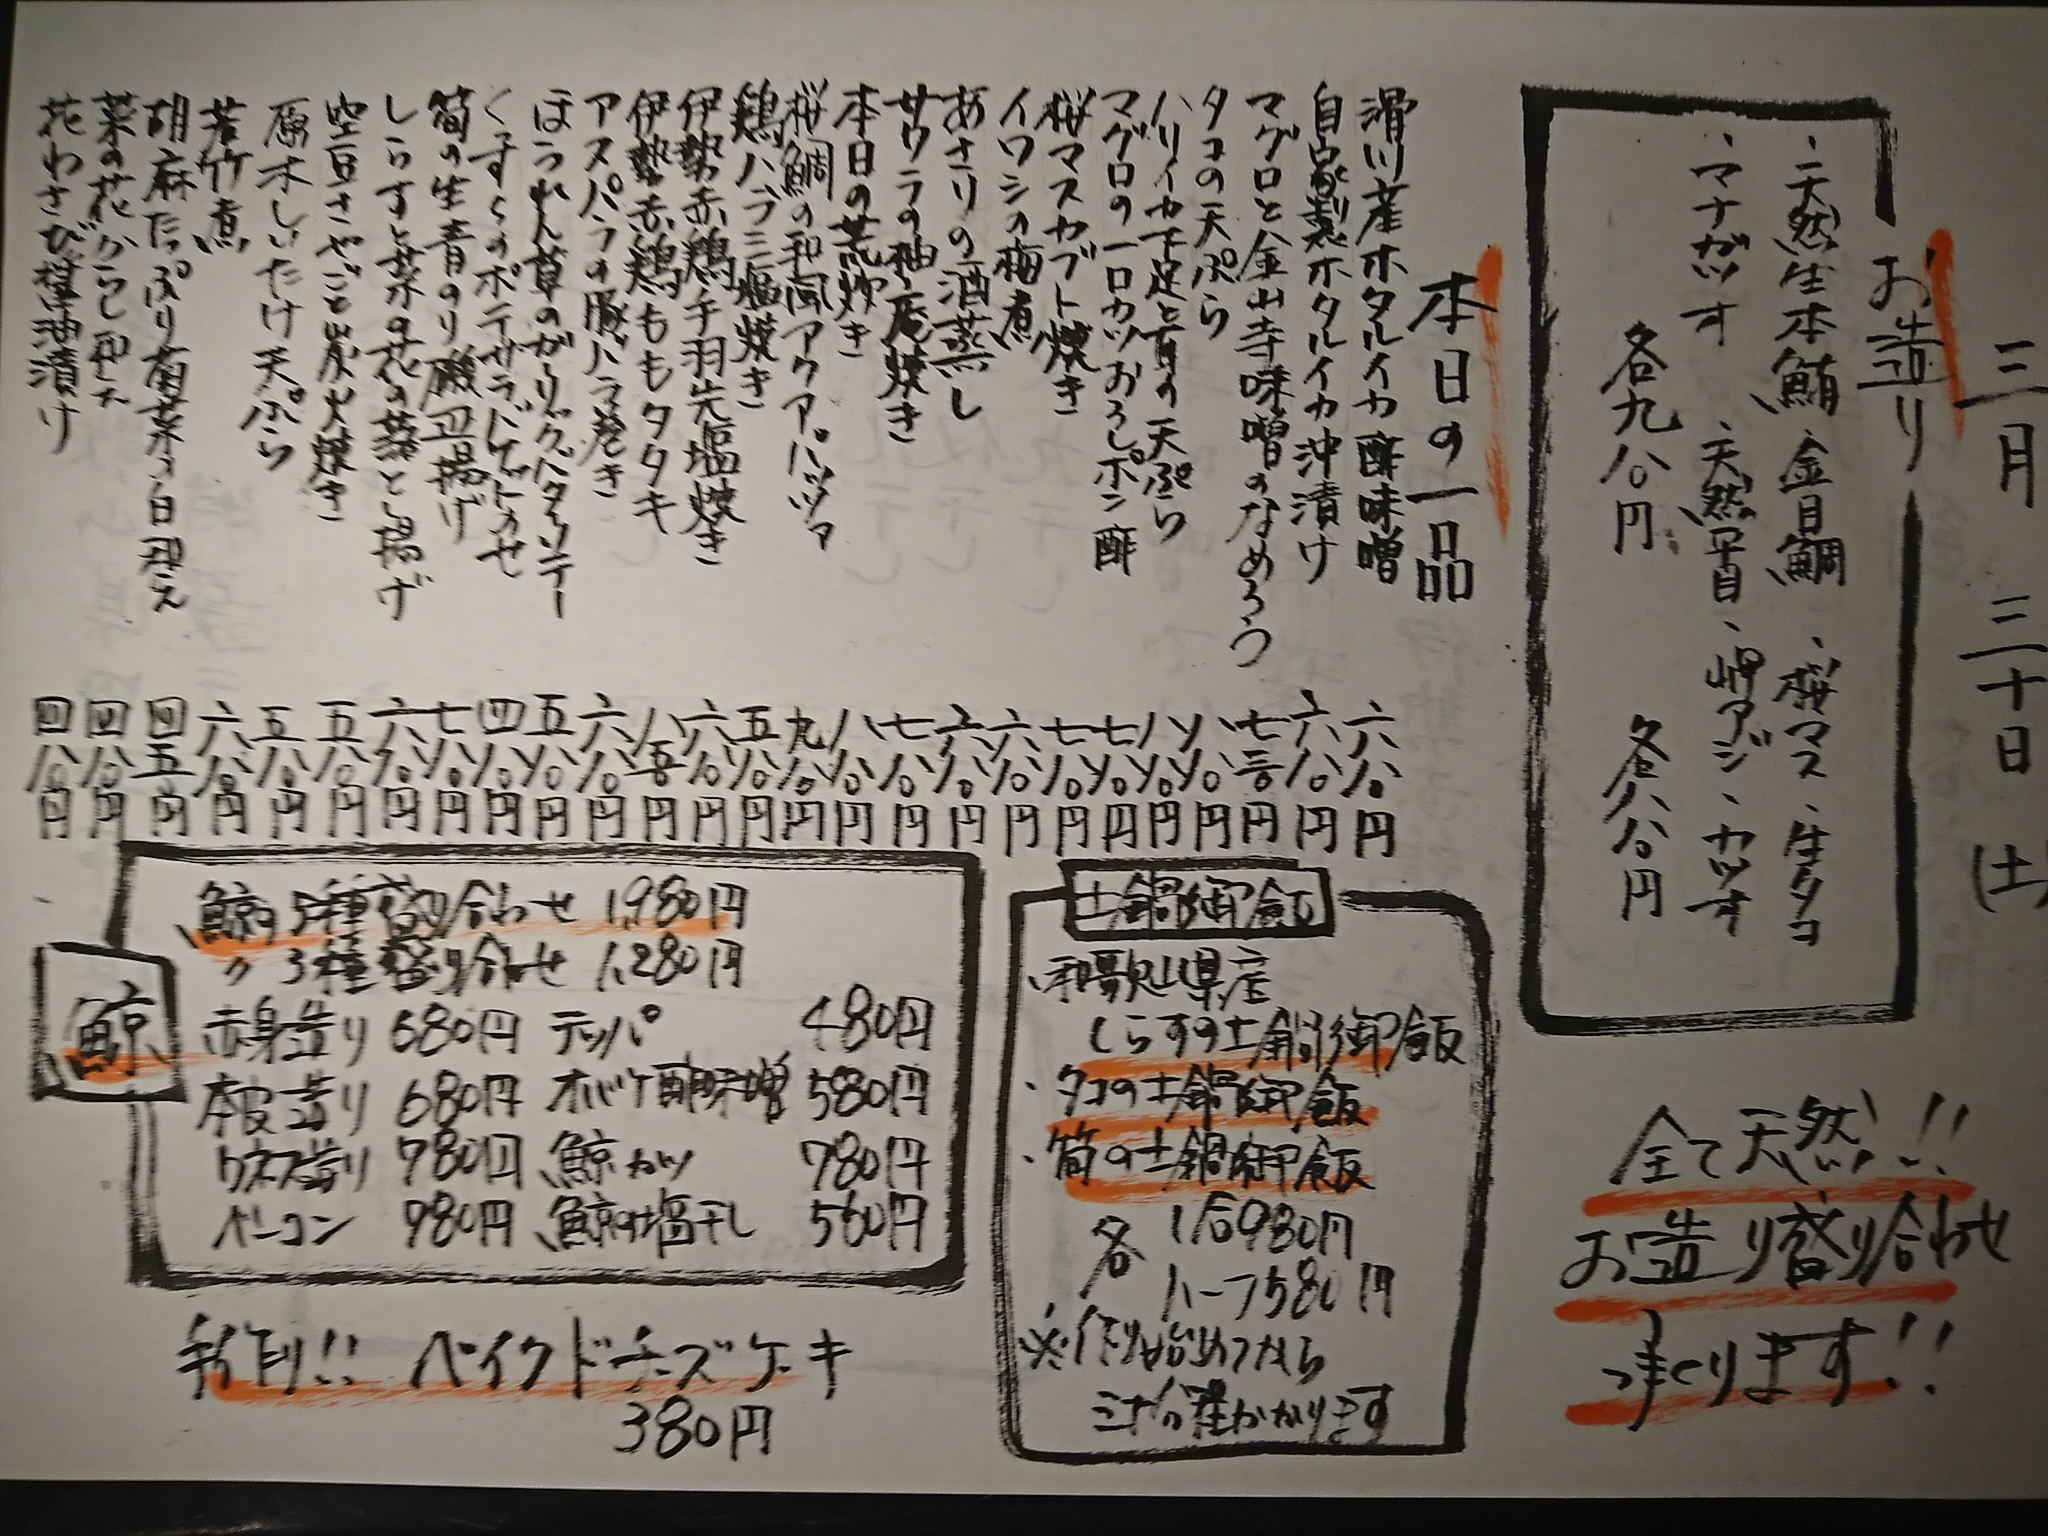 三月三十日(土)
お造り
・天然生本鮪・金目鯛・桜マス・生タコ
・マナガツオ・天然平目・岬アジ・カツオ
各九八〇円 各八八〇円
全て天然!!
お造り盛り合わせ
つくります!!
本日の一品
滑川産ホタルイカ酢味噌 六八〇円
自家製ホタルイカ沖漬け 六八〇円
マグロと金山寺味噌のなめろう 七三〇円
タコの天ぷら 八八〇円
ハリイカ下足と の天ぷら 八八〇円
マグロの一口カツおろしポン酢 七八〇円
桜マスカブト焼き 七八〇円
イワシの梅煮 六八〇円
あさりの酒蒸し 六八〇円
サワラの柚庵焼き 七八〇円
本日の荒炊き 八八〇円
桜鯛の和風アクアパッツァ 九八〇円
鶏ハラミ塩焼き 五八〇円
伊勢赤鶏手羽先塩焼き 六八〇円
伊勢赤鶏ももタタキ 八五〇円
アスパラの豚バラ巻き 六八〇円
ほうれん草のガーリックバターソテー 五八〇円
くずしポテサラバゲットのせ 四八〇円
筍の生青のり磯辺揚げ 七八〇円
しらすと菜の花の落とし揚げ 六八〇円
空豆さやごと炭火焼き 五八〇円
原木しいたけ天ぷら 五八〇円
若竹煮 六八〇円
胡麻たっぷり菊菜の白和え 四五〇円
菜の花からし和え 四八〇円
花わさび醤油漬け 四八〇円
土鍋御飯
・和歌山県産
しらすの土鍋御飯
・タコの土鍋御飯
・筍の土鍋御飯
各 1合980円
ハーフ580円
※作り始めてから
三十分程かかります
鯨
鯨5種盛り合わせ 1,980円
〃3種盛り合わせ 1,280円
赤身造り 680円 テッパ 480円
本皮造り 680円 オバケ酢味噌 580円
ウネス造り 980円 鯨カツ 780円
ベーコン 980円 鯨の塩干し 560円
新作り!! ベイクドチーズケーキ
380円